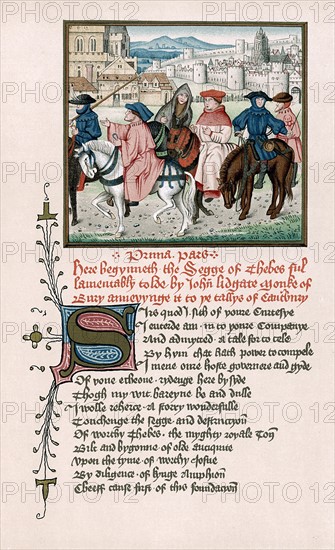 Prima Pars
Here begynneth the Segge of Thebes ful
lamentably tolde by John Lidgate Monke of
Bury anneyynge it to ye tallys of Cauntbury
Sirs quod I sith of youre Curtesye
I entrede am in to youre Companye
And admytted a tale for to tele
By hym that hath power to compele
I mene oure hoste governere and gyde
Of yone echeone rydenge here by syde
Thogh my wit bareyne be and dulle
I wolle reherce a storry wonderfulle
Touchenge the segge and destruccyon
Of worthy Thebes the myghty royale Ton
Bilt and bygonne of olde antiquite
Upon the tyme of worthy Josue
By diligence of kynge Amphion
Cheeff cause first of this foundacion
PHOTO 12